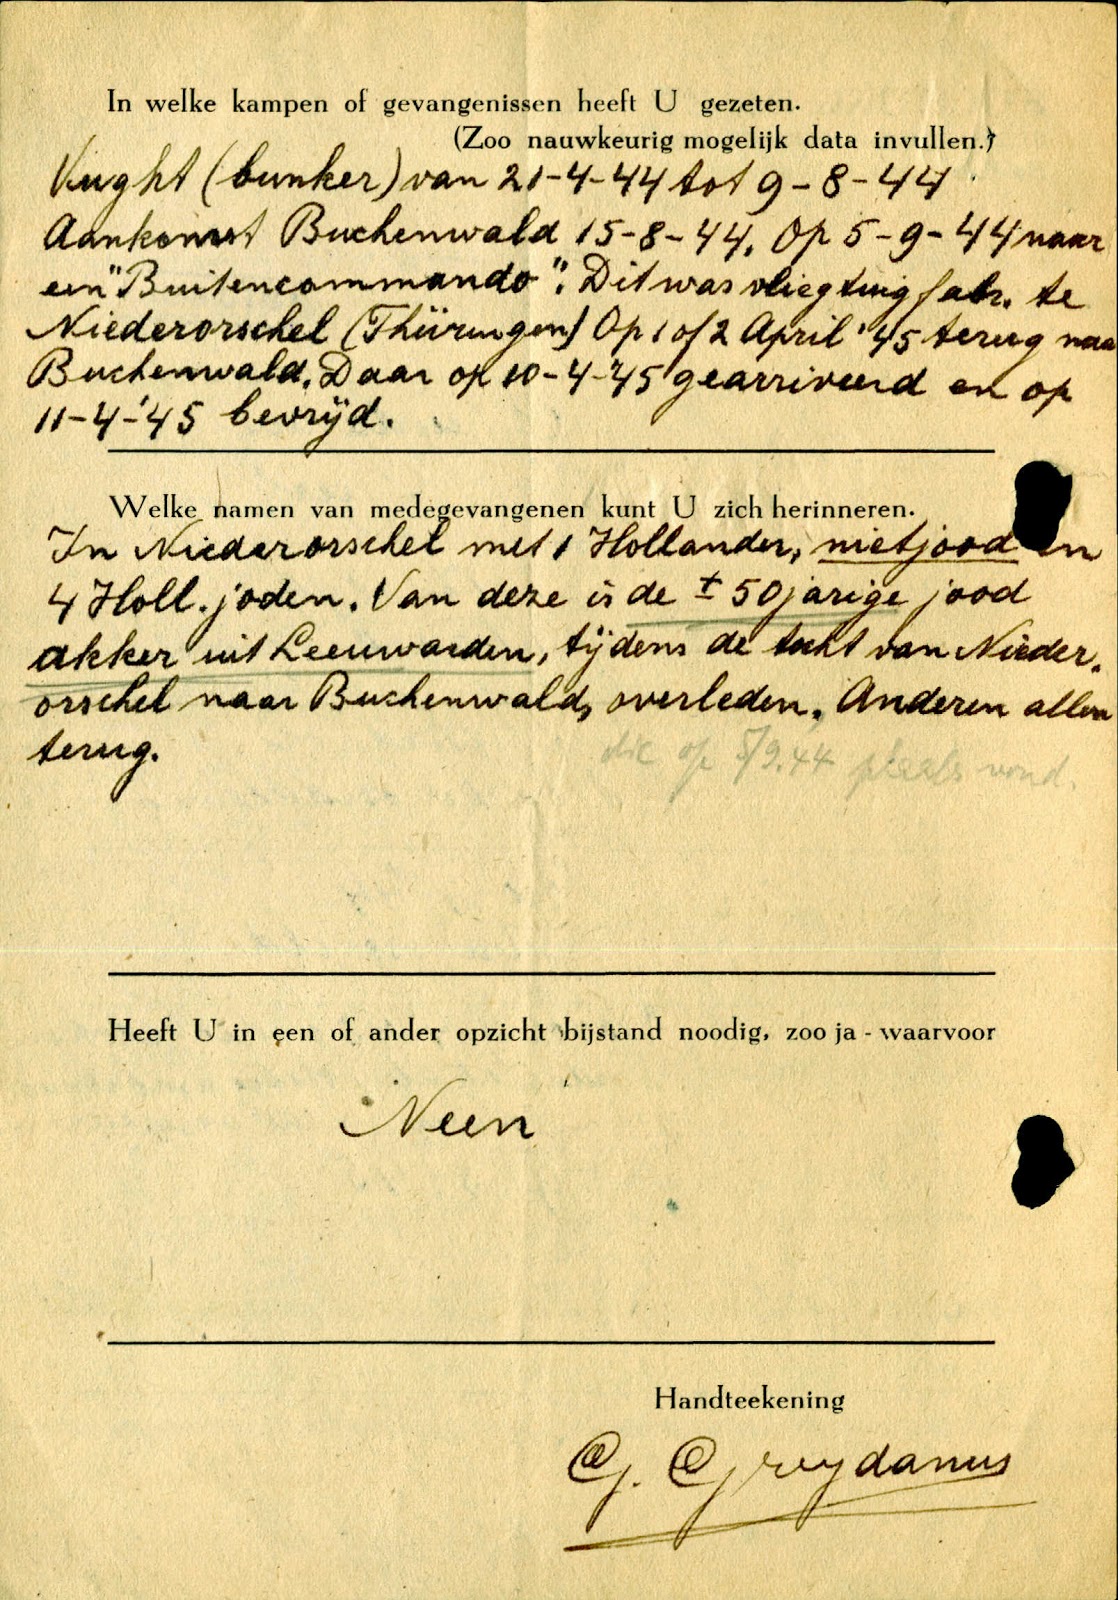 In welke kampen of gevangenissen heeft U gezeten.
(Zoo nauwkeurig mogelijk data invullen.)
Vught (bunker) van 21-4-44 tot 9-8-44
Aankomst Buchenwald 15-8-44. Op 5-9-44 naar
een "Buitencommando". Dit was vliegtuigfabr. te
Niederorschel (Thüringen) Op 1 of 2 April '45 terug naa
Buchenwald. Daar op 10-4-'45 gearriveerd en op
11-4-'45 bevrijd.
Welke namen van medegevangenen kunt U zich herinneren.
In Niederorschel met 1 Hollander, niet jood en
4 Holl. joden. Van deze is de ± 50 jarige jood
akker uit Leeuwarden, tijdens de tocht van Nieder-
orschel naar Buchenwald, overleden. Anderen allen
terug.
die op 5/9.44 plaats vond.
Heeft U in een of ander opzicht bijstand noodig, zoo ja - waarvoor
Neen
Handteekening
G. Greydanus